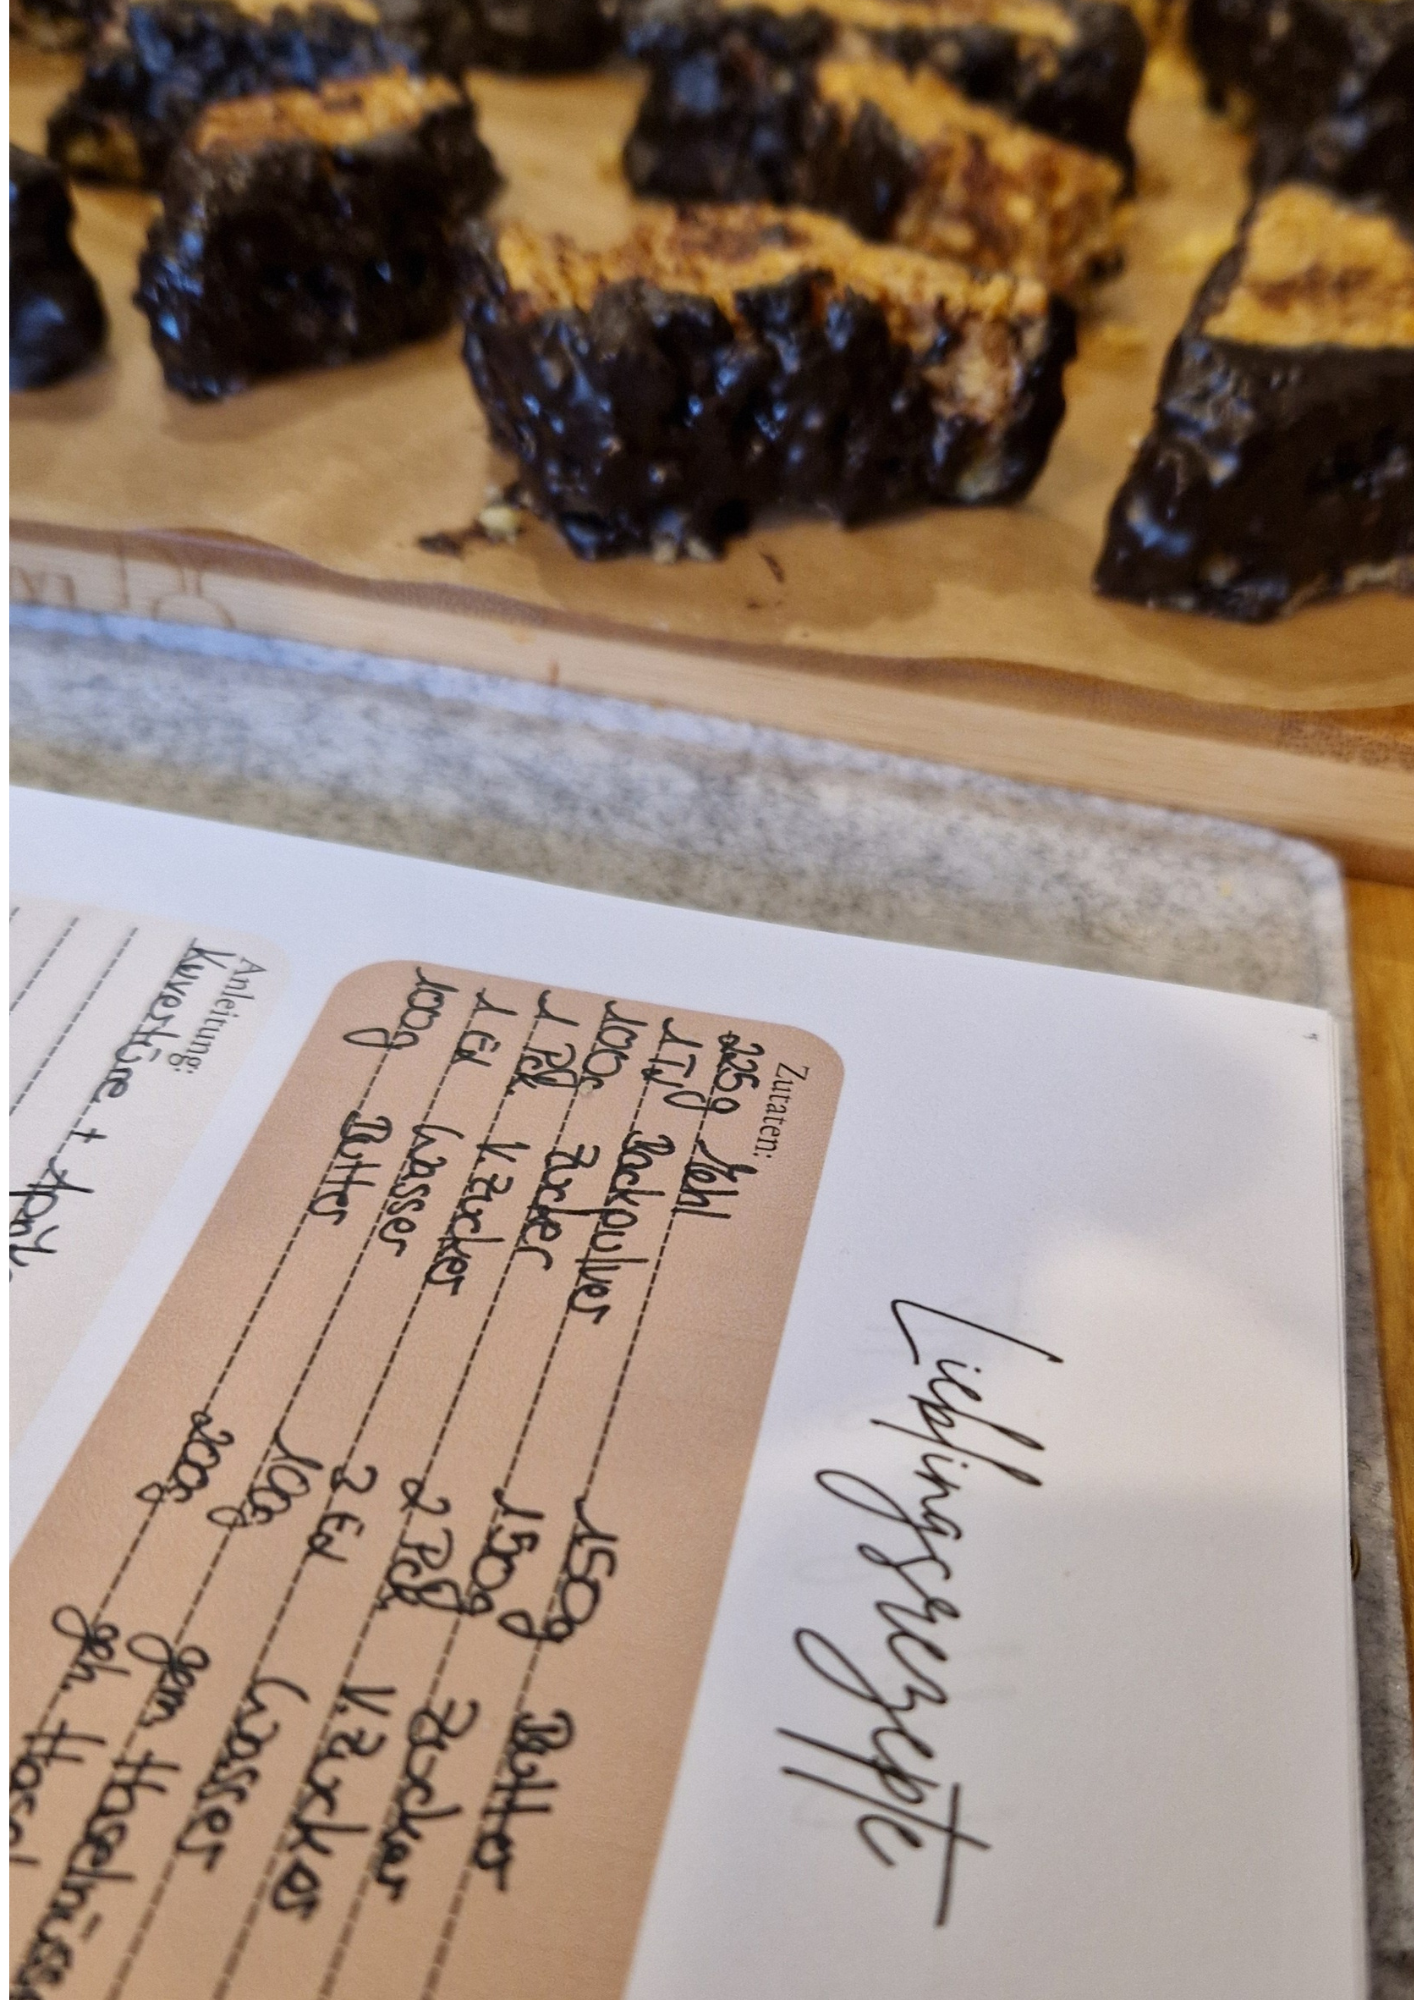 Lieblingsrezepte
Zutaten:
225g Mehl
1 Tl Backpulver
100g Zucker
1 Pck V. Zucker
1 El Wasser
100g Butter
150g Butter
150g Zucker
2 Pck V. Zucker
2 El Wasser
100g gem. Haselnüsse
200g geh. Hasel
Anleitung:
Kuvertüre +